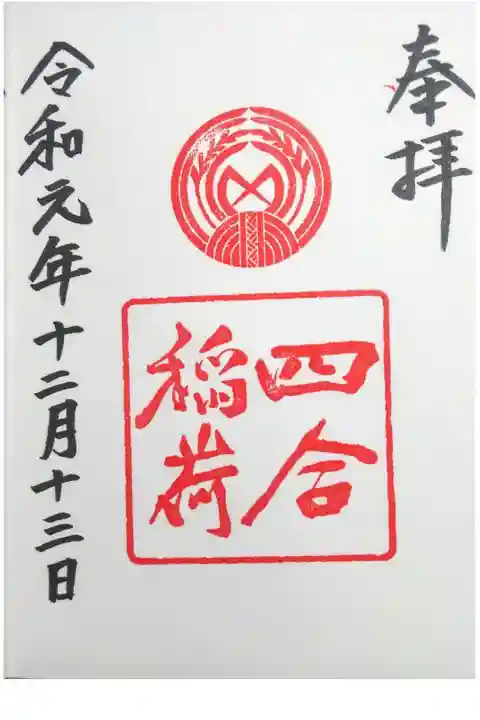 奉拝
四合
稲荷
令和元年十二月十三日